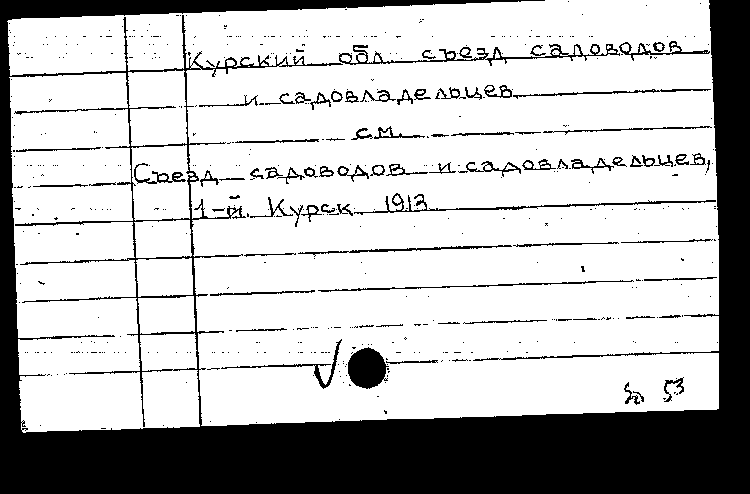 Курский обл. съезд садоводов
и садовладельцев
см.
Съезд садоводов и садовладельцев,
1-й. Курск. 1912
53